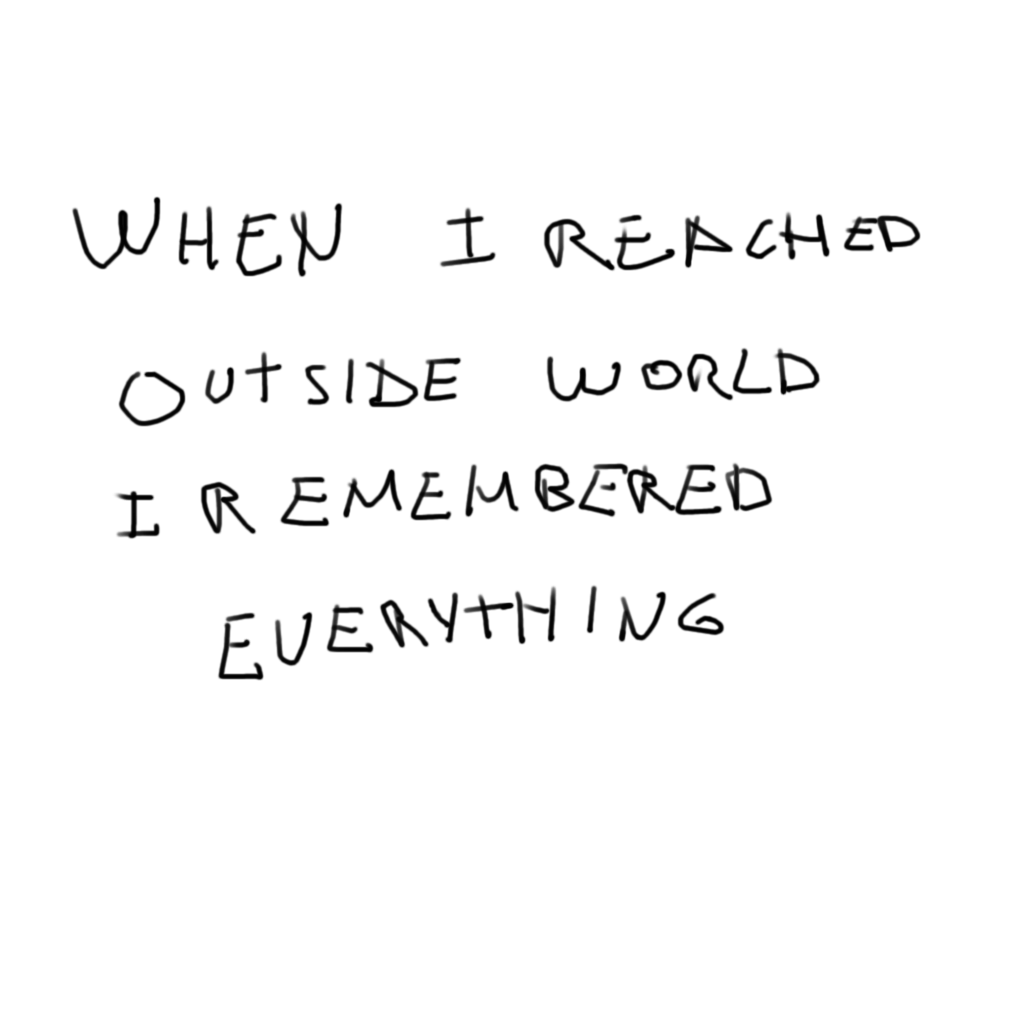 WHEN I REACHED
OUTSIDE WORLD
I REMEMBERED
EVERYTHING